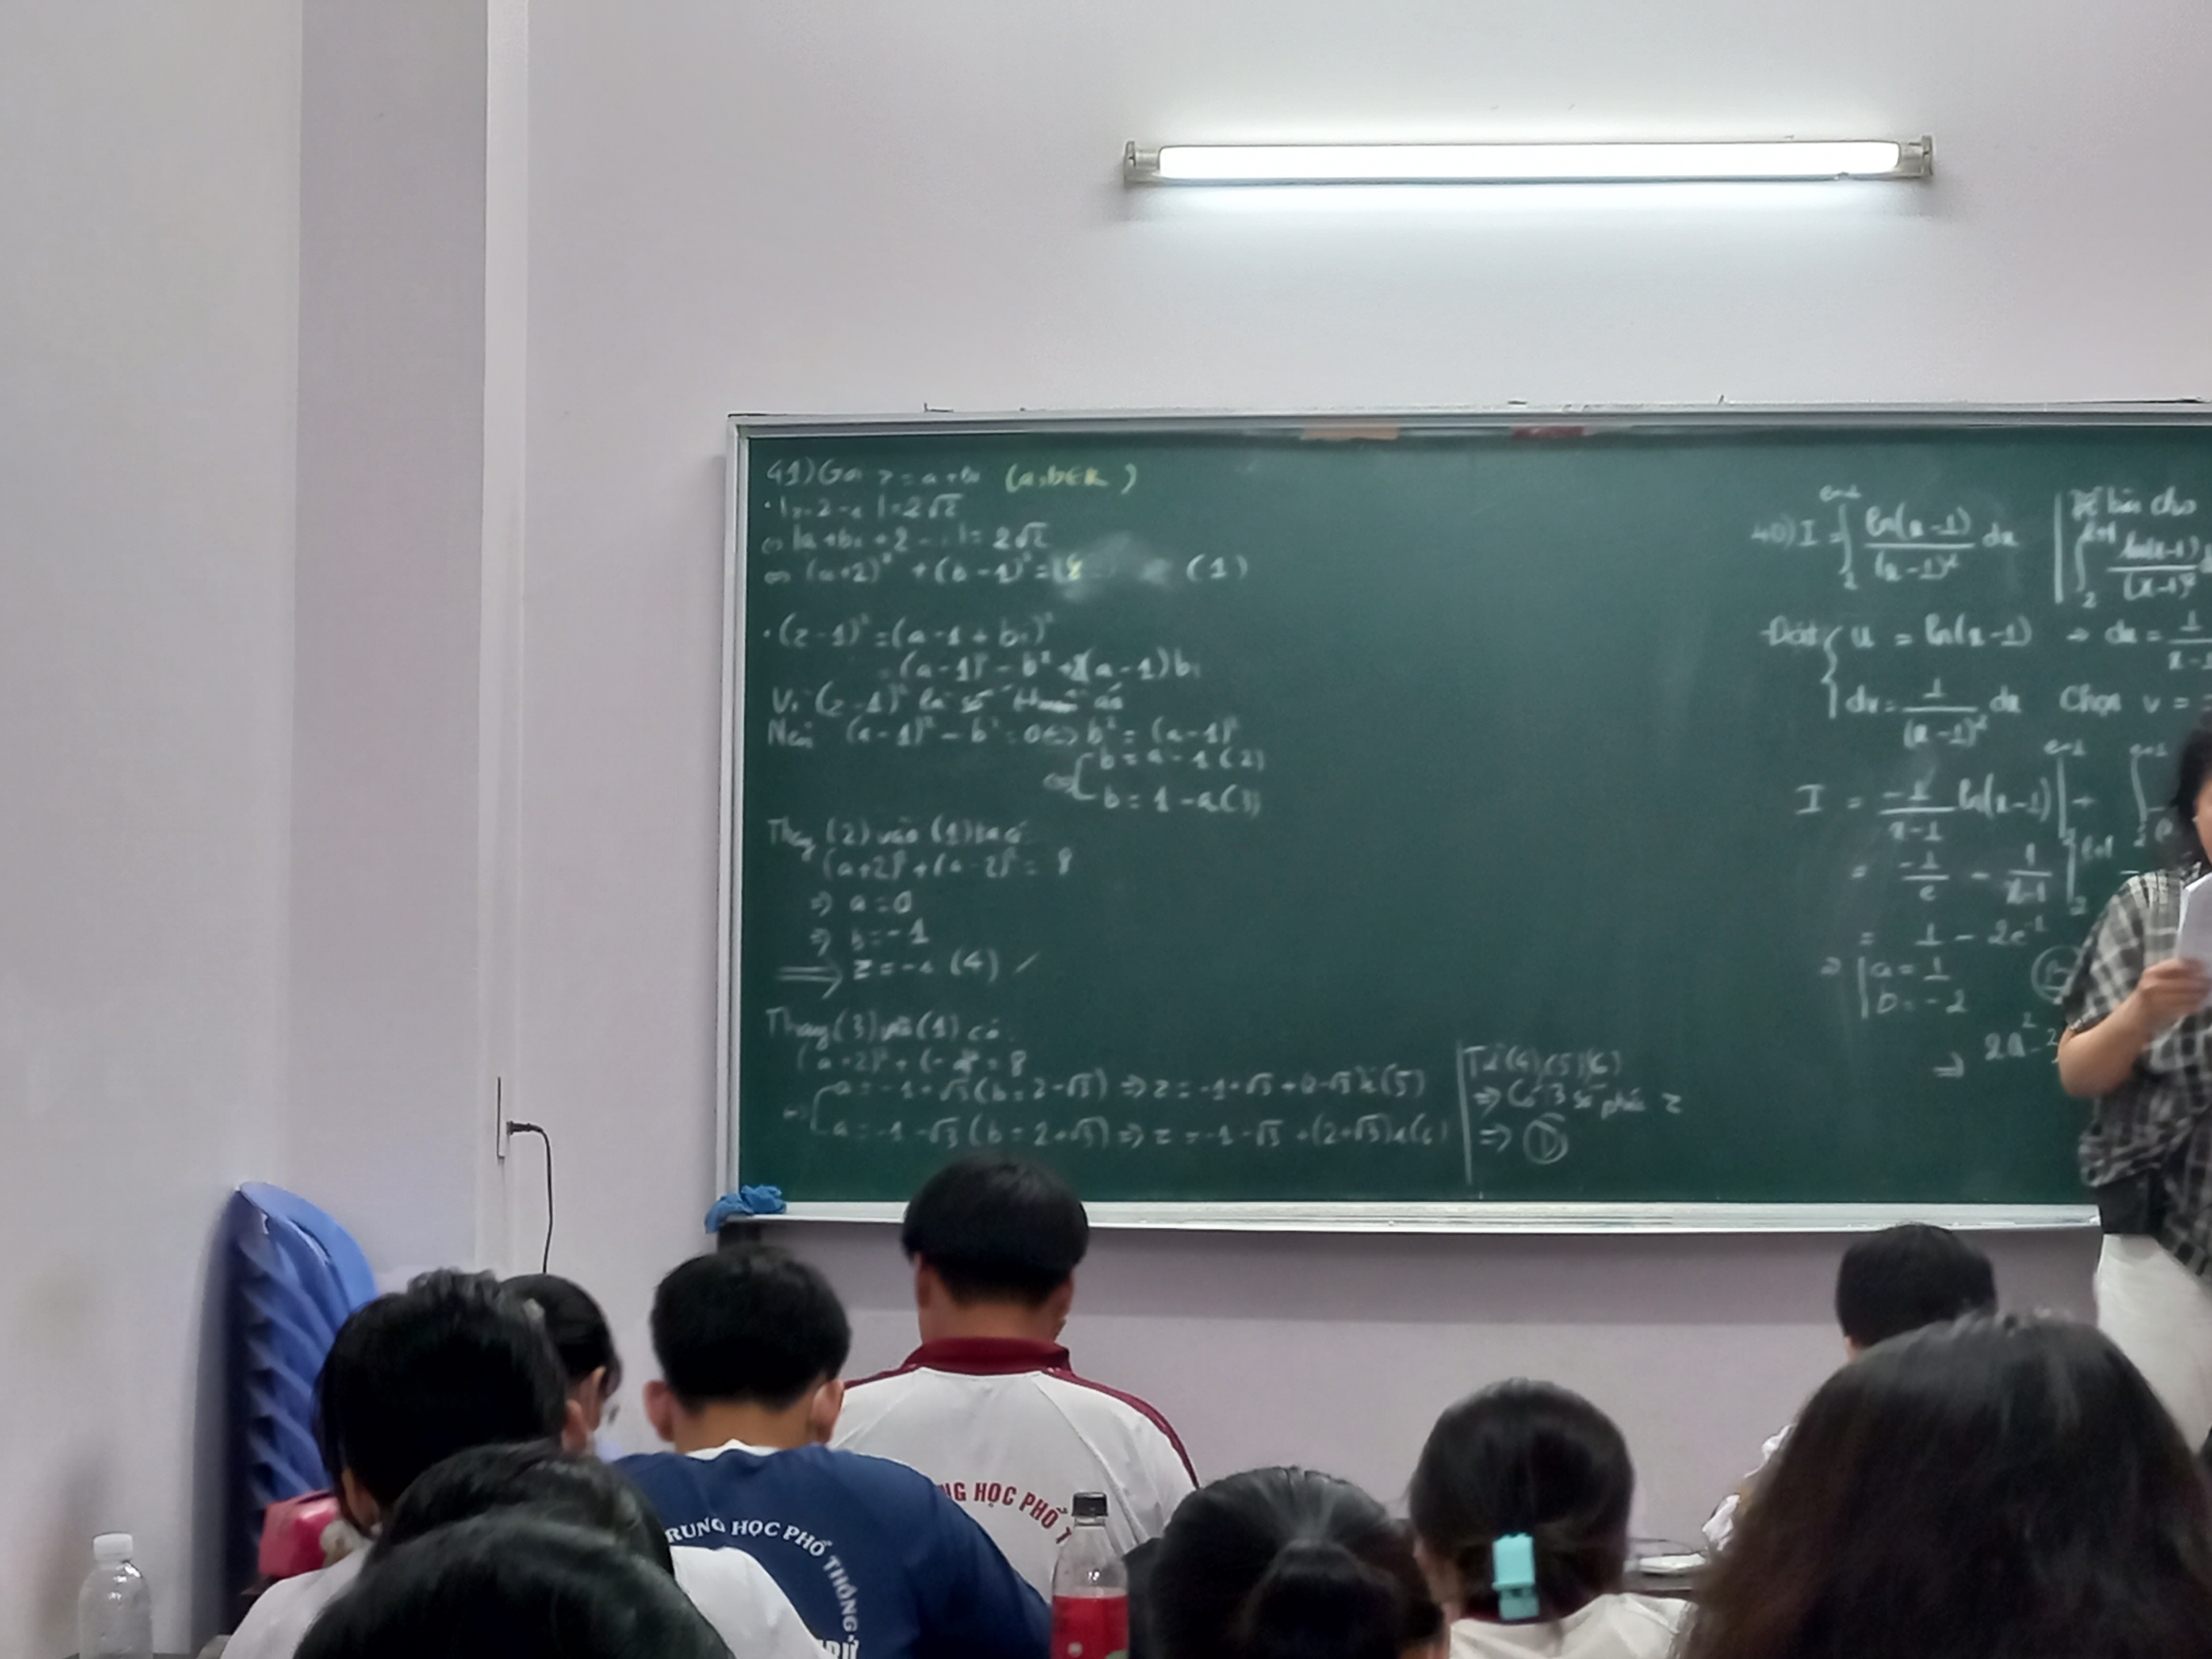 41) Gọi z = a + bi (a,b∈R)
· |z + 2 - i| = 2√2
⇔ |a + bi + 2 - i| = 2√2
⇔ (a+2)² + (b-1)² = 8 (1)
· (z-1)² = (a-1+bi)²
= (a-1)² - b² + 2(a-1)bi
Vì (z-1)² là số thuần ảo
Nên (a-1)² - b² = 0 ⇔ b² = (a-1)²
⇔ [ b = a-1 (2)
b = 1-a (3)
Thay (2) vào (1) ta có
(a+2)² + (a-2)² = 8
⇒ a = 0
⇒ b = -1
⟹ z = -i (4)
Thay (3) vào (1) có
(a+2)² + (-a)² = 8
⇔ [ a = -1+√3 (b = 2-√3) ⇒ z = -1+√3 + (2-√3)i (5)
a = -1-√3 (b = 2+√3) ⇒ z = -1-√3 + (2+√3)i (6)
Từ (4)(5)(6)
⇒ Có 3 số phức z
⇒ D
40) I = ∫₂ ln(x-1)/(x-1)² dx
Đề bài cho
∫₂ ln(x-1)/(x-1)²
Đặt { u = ln(x-1) → du = 1/x-1
dv = 1/(x-1)² dx Chọn v =
I = -1/x-1 ln(x-1)| + ∫
= -1/e - 1/x-1 |₂
= 1 - 2e⁻¹
⇒ | a = 1
b = -2
⇒ 2a²
NG HỌC PHỔ T
RUNG HỌC PHỔ THÔNG